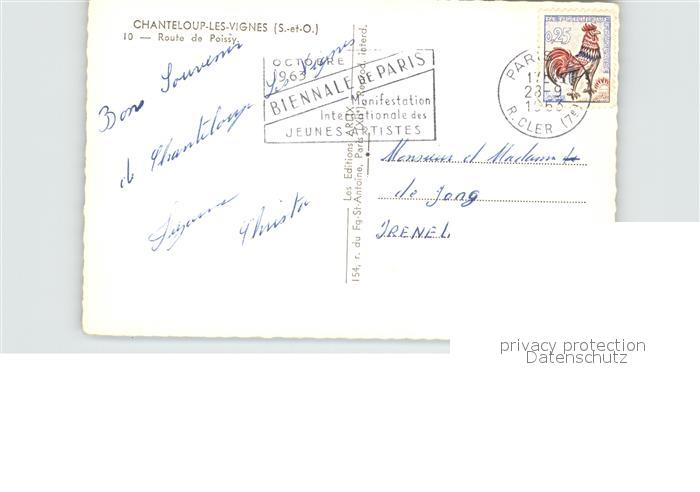 CHANTELOUP-LES-VIGNES (S.-et-O.)
10 — Route de Poissy.
Bons Souvenir
de Chanteloup Les Vignes
Suzanne Christa
OCTOBRE
1963
BIENNALE DE PARIS
Manifestation
Internationale des
JEUNES ARTISTES
Les Editions
154, r. du Fg-St-Antoine, Paris (XIIe) Reprod. interd.
0,25
PARIS
28-9
1963
R. CLER (7e)
Monsieur et Madame
de Jong
IRENEL
privacy protection
Datenschutz